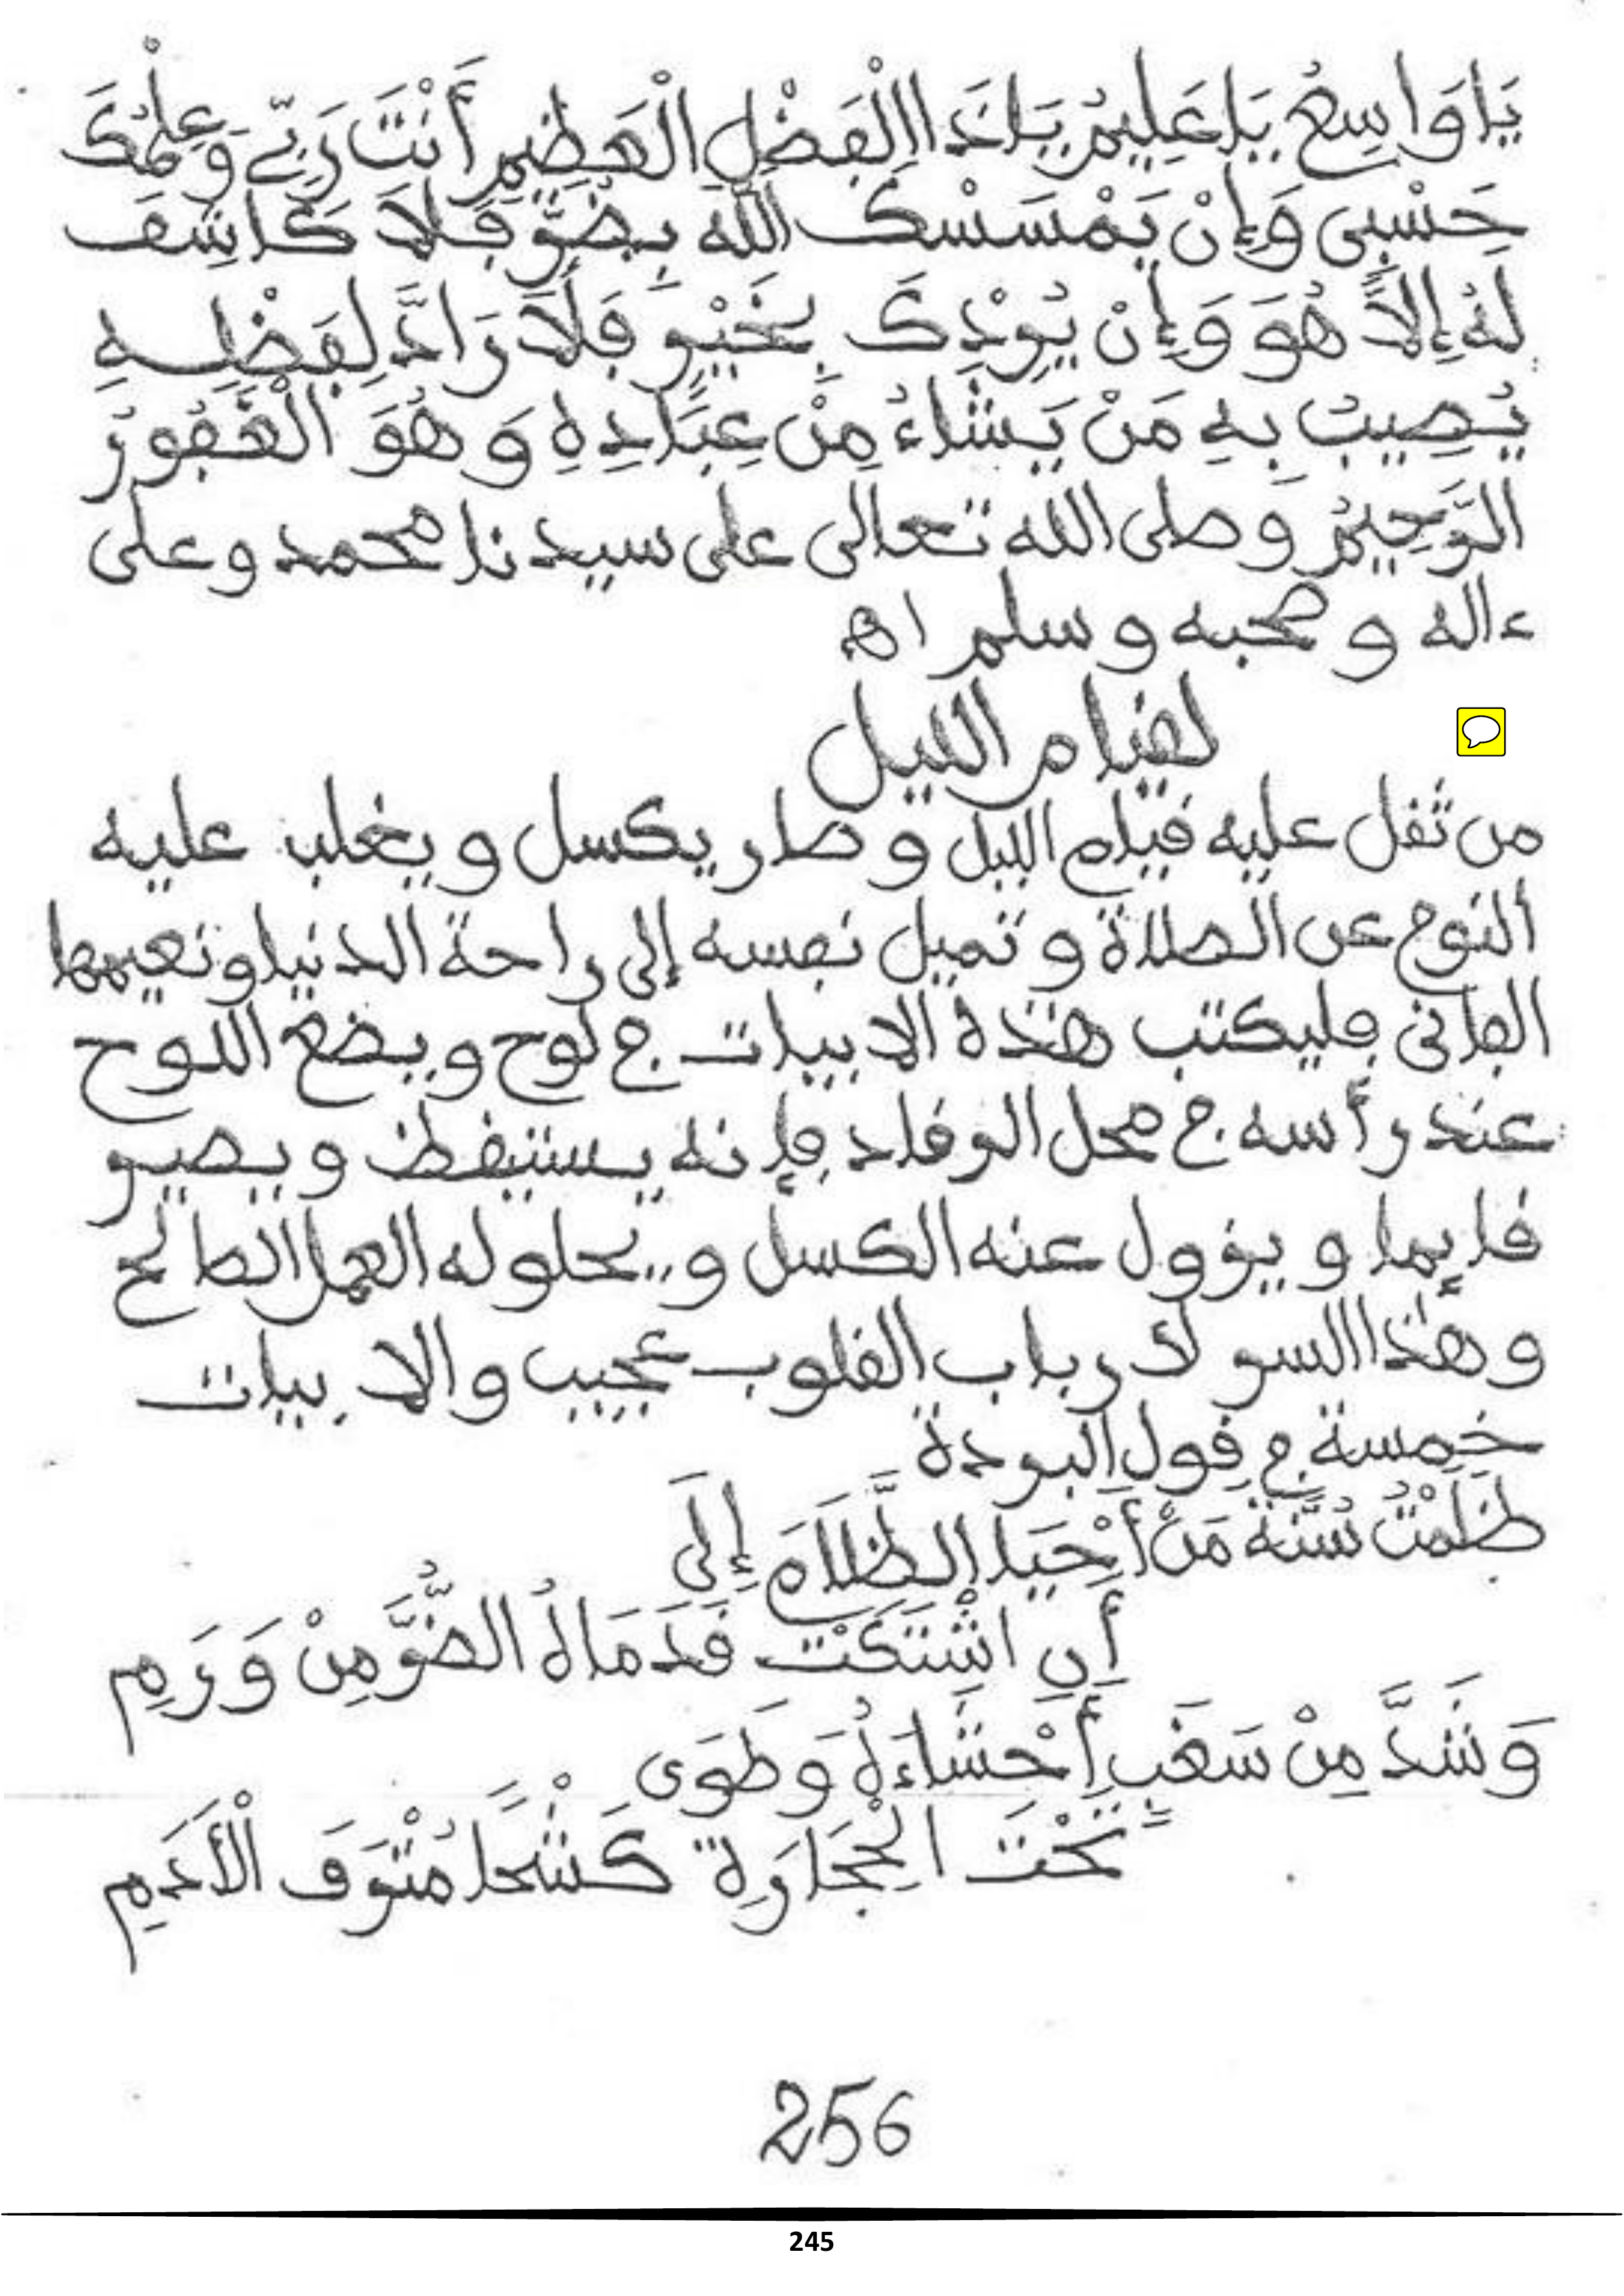 يَا وَاسِعُ يَا عَلِيمُ يَا ذَا الْفَضْلِ الْعَظِيمِ أَنْتَ رَبِّي وَعِلْمُكَ
حَسْبِي وَإِنْ يَمْسَسْكَ اللَّهُ بِضُرٍّ فَلَا كَاشِفَ
لَهُ إِلَّا هُوَ وَإِنْ يُرِدْكَ بِخَيْرٍ فَلَا رَادَّ لِفَضْلِهِ
يُصِيبُ بِهِ مَنْ يَشَاءُ مِنْ عِبَادِهِ وَهُوَ الْغَفُورُ
الرَّحِيمُ وصلى الله تعالى على سيدنا محمد وعلى
ءاله وصحبه وسلم اه
لقيام الليل
من ثقل عليه قيام الليل وصار يكسل ويغلب عليه
ألنوم عن الصلاة وتميل نفسه إلى راحة الدنيا ونعيمها
الفاني فليكتب هذه الابيات في لوح ويضع اللوح
عند رأسه في محل الوقاد فإنه يستيقظ ويصير
قايما ويزول عنه الكسل ويحلو له العمل الصالح
وهذا السر لأرباب القلوب عجيب والابيات
خمسة في قول البردة
ظَلَمْتُ سُنَّةَ مَنْ أَحْيَا الظَّلَامَ إِلَى
أَنِ اشْتَكَتْ قَدَمَاهُ الضُّرَّ مِنْ وَرَمِ
وَشَدَّ مِنْ سَغَبٍ أَحْشَاءَهُ وَطَوَى
تَحْتَ الْحِجَارَةِ كَشْحًا مُتْرَفَ الْأَدَمِ
256
245